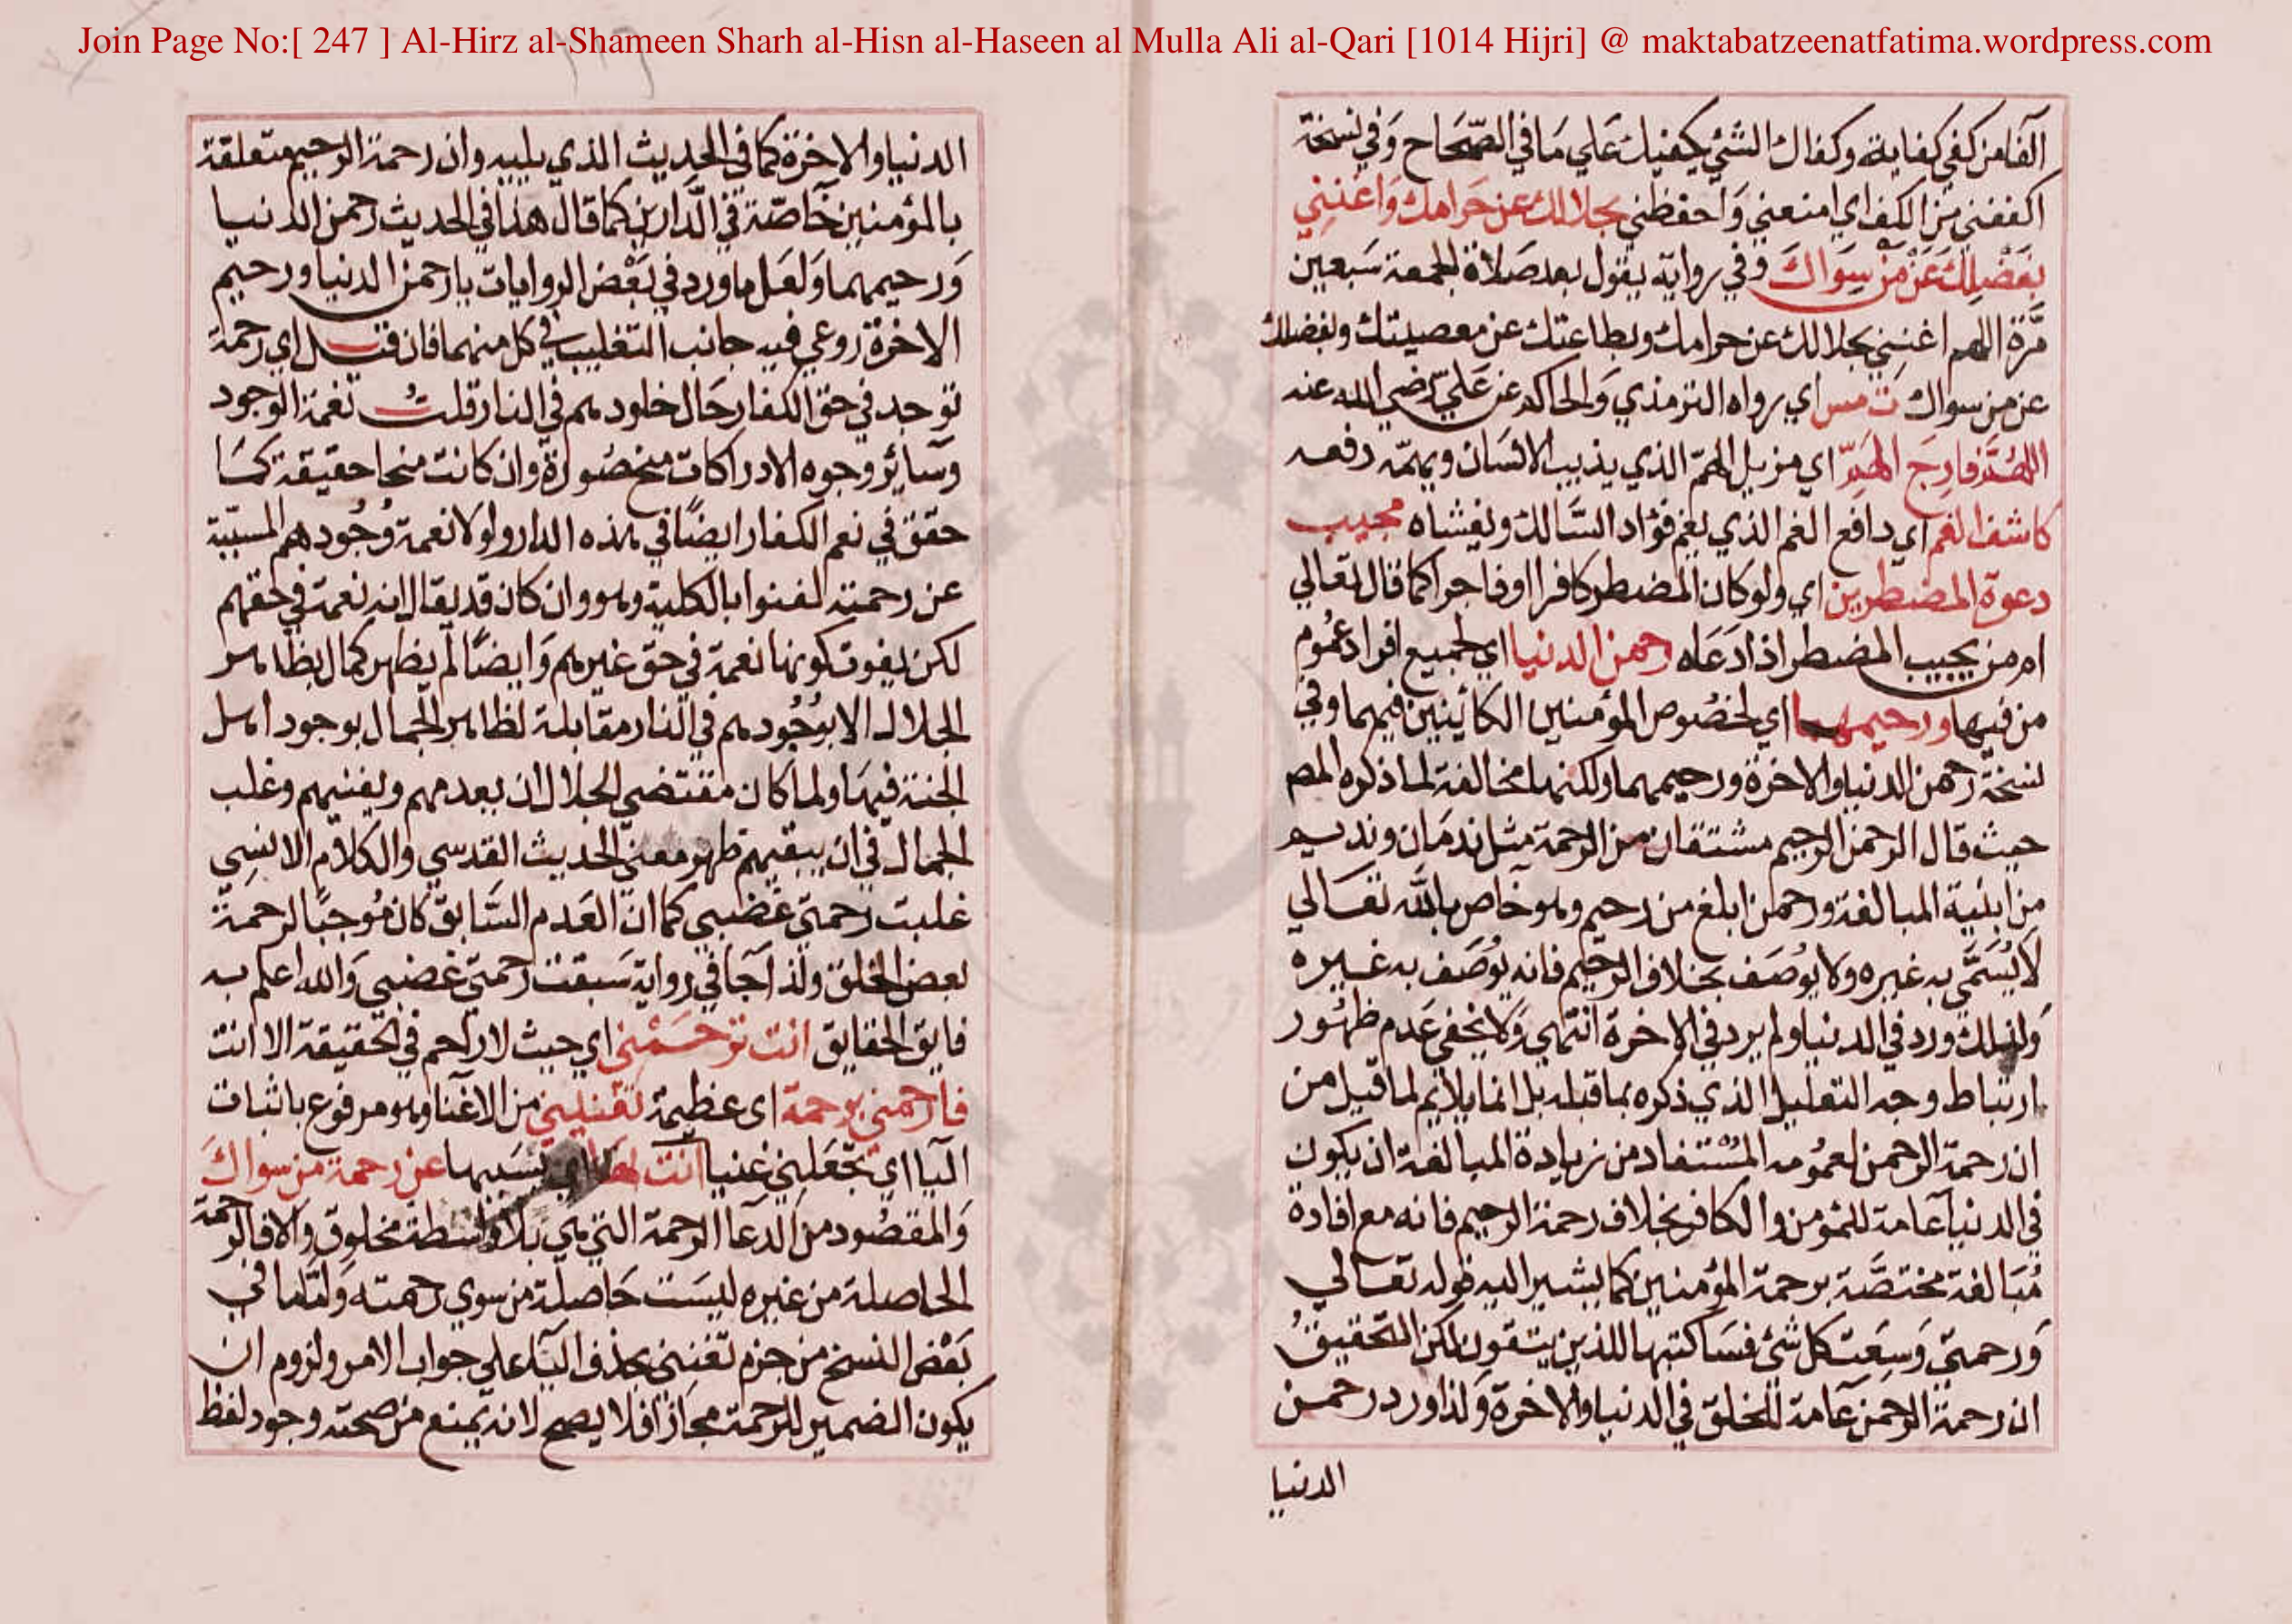 Join Page No:[ 247 ] Al-Hirz al-Shameen Sharh al-Hisn al-Haseen al Mulla Ali al-Qari [1014 Hijri] @ maktabatzeenatfatima.wordpress.com
الفا من كفي كفاية وكفاك الشئ يكفيك علي ما في الصحاح وفي نسخة
اكففني من الكف اي امنعني واحفظني بحلالك عن حرامك واغنني
بفضلك عن من سواك وفي رواية يقول بعد صلاة الجمعة سبعين
مرة اللهم اغنني بحلالك عن حرامك وبطاعتك عن معصيتك وبفضلك
عن من سواك ت مس اي رواه الترمذي والحاكم عن علي رضي الله عنه
اللهم فارج الهم اي مزيل الهم الذي يذيب الانسان ويهمه دفعه
كاشف الغم اي دافع الغم الذي يغم فؤاد السالك ويغشاه مجيب
دعوة المضطرين اي ولو كان المضطر كافرا او فاجرا كما قال تعالي
امن يجيب المضطر اذا دعاه رحمن الدنيا اي لجميع افراد عموم
من فيها ورحيمهما اي لخصوص المؤمنين الكائنين فيهما وفي
نسخة رحمن الدنيا والاخرة ورحيمهما ولكنها مخالفة لما ذكره المص
حيث قال الرحمن الرحيم مشتقان من الرحمة مثل ندمان ونديم
من ابنية المبالغة ورحمن ابلغ من رحيم وهو خاص بالله تعالي
لا يسمي به غيره ولا يوصف بخلاف الرحيم فانه يوصف به غيره
ولذلك ورد في الدنيا ولم يرد في الاخرة انتهي ولا يخفي عدم ظهور
ارتباط وجه التعليل الذي ذكره بما قبله بل انما يلايم لما قيل من
ان رحمة الرحمن لعمومه المستفاد من زيادة المبالغة ان يكون
في الدنيا عامة للمؤمن والكافر بخلاف رحمة الرحيم فانه مع افادة
مبالغة مختصة برحمة المؤمنين كما يشير اليه قوله تعالي
ورحمتي وسعت كل شئ فساكتبها للذين يتقون لكن التحقيق
ان رحمة الرحمن عامة للخلق في الدنيا والاخرة ولذا ورد رحمن
الدنيا
الدنيا والاخرة كما في الحديث الذي يليه وان رحمة الرحيم متعلقة
بالمؤمنين خاصة في الدارين كما قال هذا في الحديث رحمن الدنيا
ورحيمهما ولعل ما ورد في بعض الروايات يا رحمن الدنيا ورحيم
الاخرة روعي فيه جانب التغليب في كل منهما فان قيل اي رحمة
توجد في حق الكفار حال خلودهم في النار قلت نعمة الوجود
وسائر وجوه الادراكات منحصورة وان كانت منحا حقيقة كما
حقق في نعم الكفار ايضا في هذه الدار ولولا نعمة وجودهم المسببة
عن رحمته لفنوا بالكلية وهو وان كان قد يقال انه نعمة في حقهم
لكن يفوت كونها نعمة في حق غيرهم وايضا لم يظهر كمال بظاهر
الجلال الا بوجودهم في النار مقابلة لظاهر الجمال بوجود اهل
الجنة فيها ولما كان مقتضي الجلال ان يعدمهم ويفنيهم وغلب
الجمال في ان يبقيهم ظهر معني الحديث القدسي والكلام الانسي
غلبت رحمتي غضبي كما ان العدم السابق كان موجبا لرحمة
بعض الخلق ولذا جا في رواية سبقت رحمتي غضبي والله اعلم به
فايق الحقايق انت ترحمني اي حيث لا راحم في الحقيقة الا انت
فارحمني برحمة اي عظيمة تغنيني من الاغنا وهو مرفوع باثبات
اليا اي تجعلني غنيا انت بها اي بسببها عن رحمة من سواك
والمقصود من الدعا الرحمة التي هي بلا واسطة مخلوق والا فالرحمة
الحاصلة من غيره ليست حاصلة من سوي رحمته واما ما في
بعض النسخ من جزم تغنني بحذف اليا علي جواب الامر ولزوم ان
يكون الضمير للرحمة مجازا فلا يصح لانه يمنع من صحته وجود لفظ